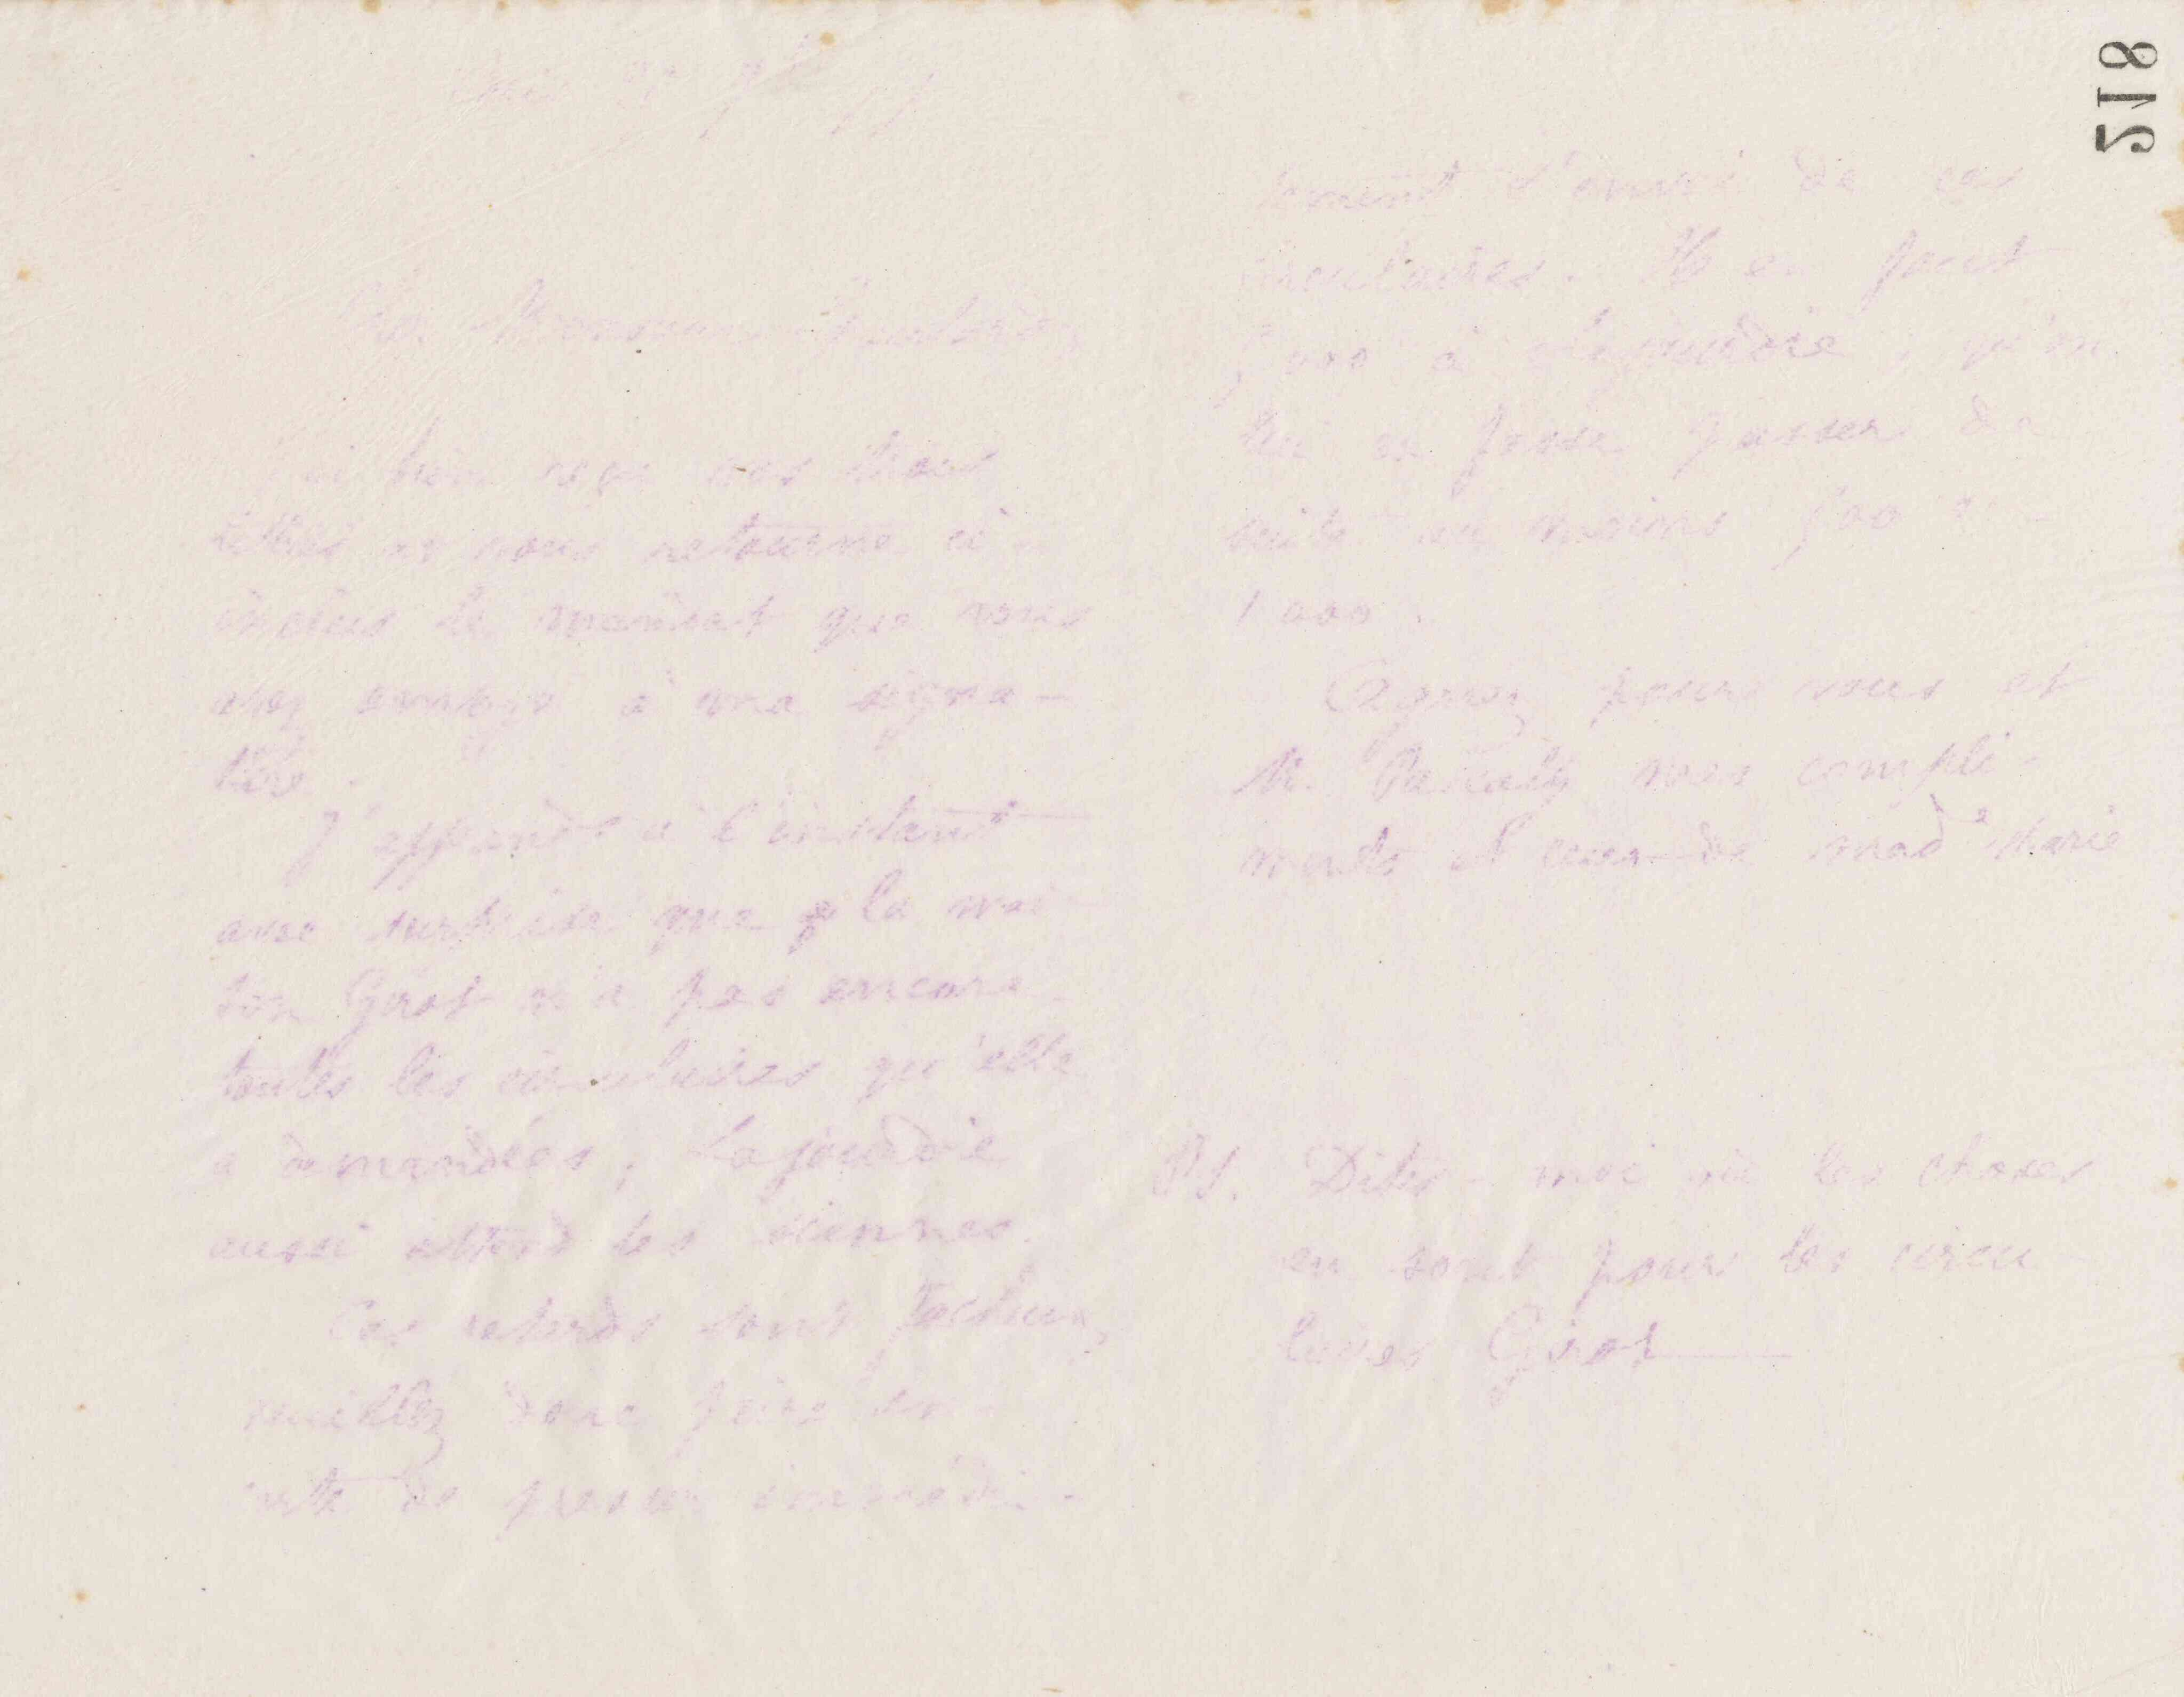 bien reçu vos trois
lettres et vous retourne ci-
inclus le mandat que vous
avez envoyé à ma signa-
ture.
J'apprends à l'instant
avec surprise que la mai-
son Gros n'a pas encore
toutes les circulaires qu'elle
a demandées, Lajoudie
aussi attend les siennes.
Ces retards sont facheux,
veuillez donc faire en
sorte de presser immédi-
tement l'envoi de ces
circulaires. Il en faut
à Lajoudie, qu'on
lui en fasse passer de
suite au moins 500
1000.
Agréez pour vous et
M. Pascaly mes compli-
ments et ceux de mad^e Marie
PS. Dites-moi où les choses
en sont pour les circu
laires Gros
518